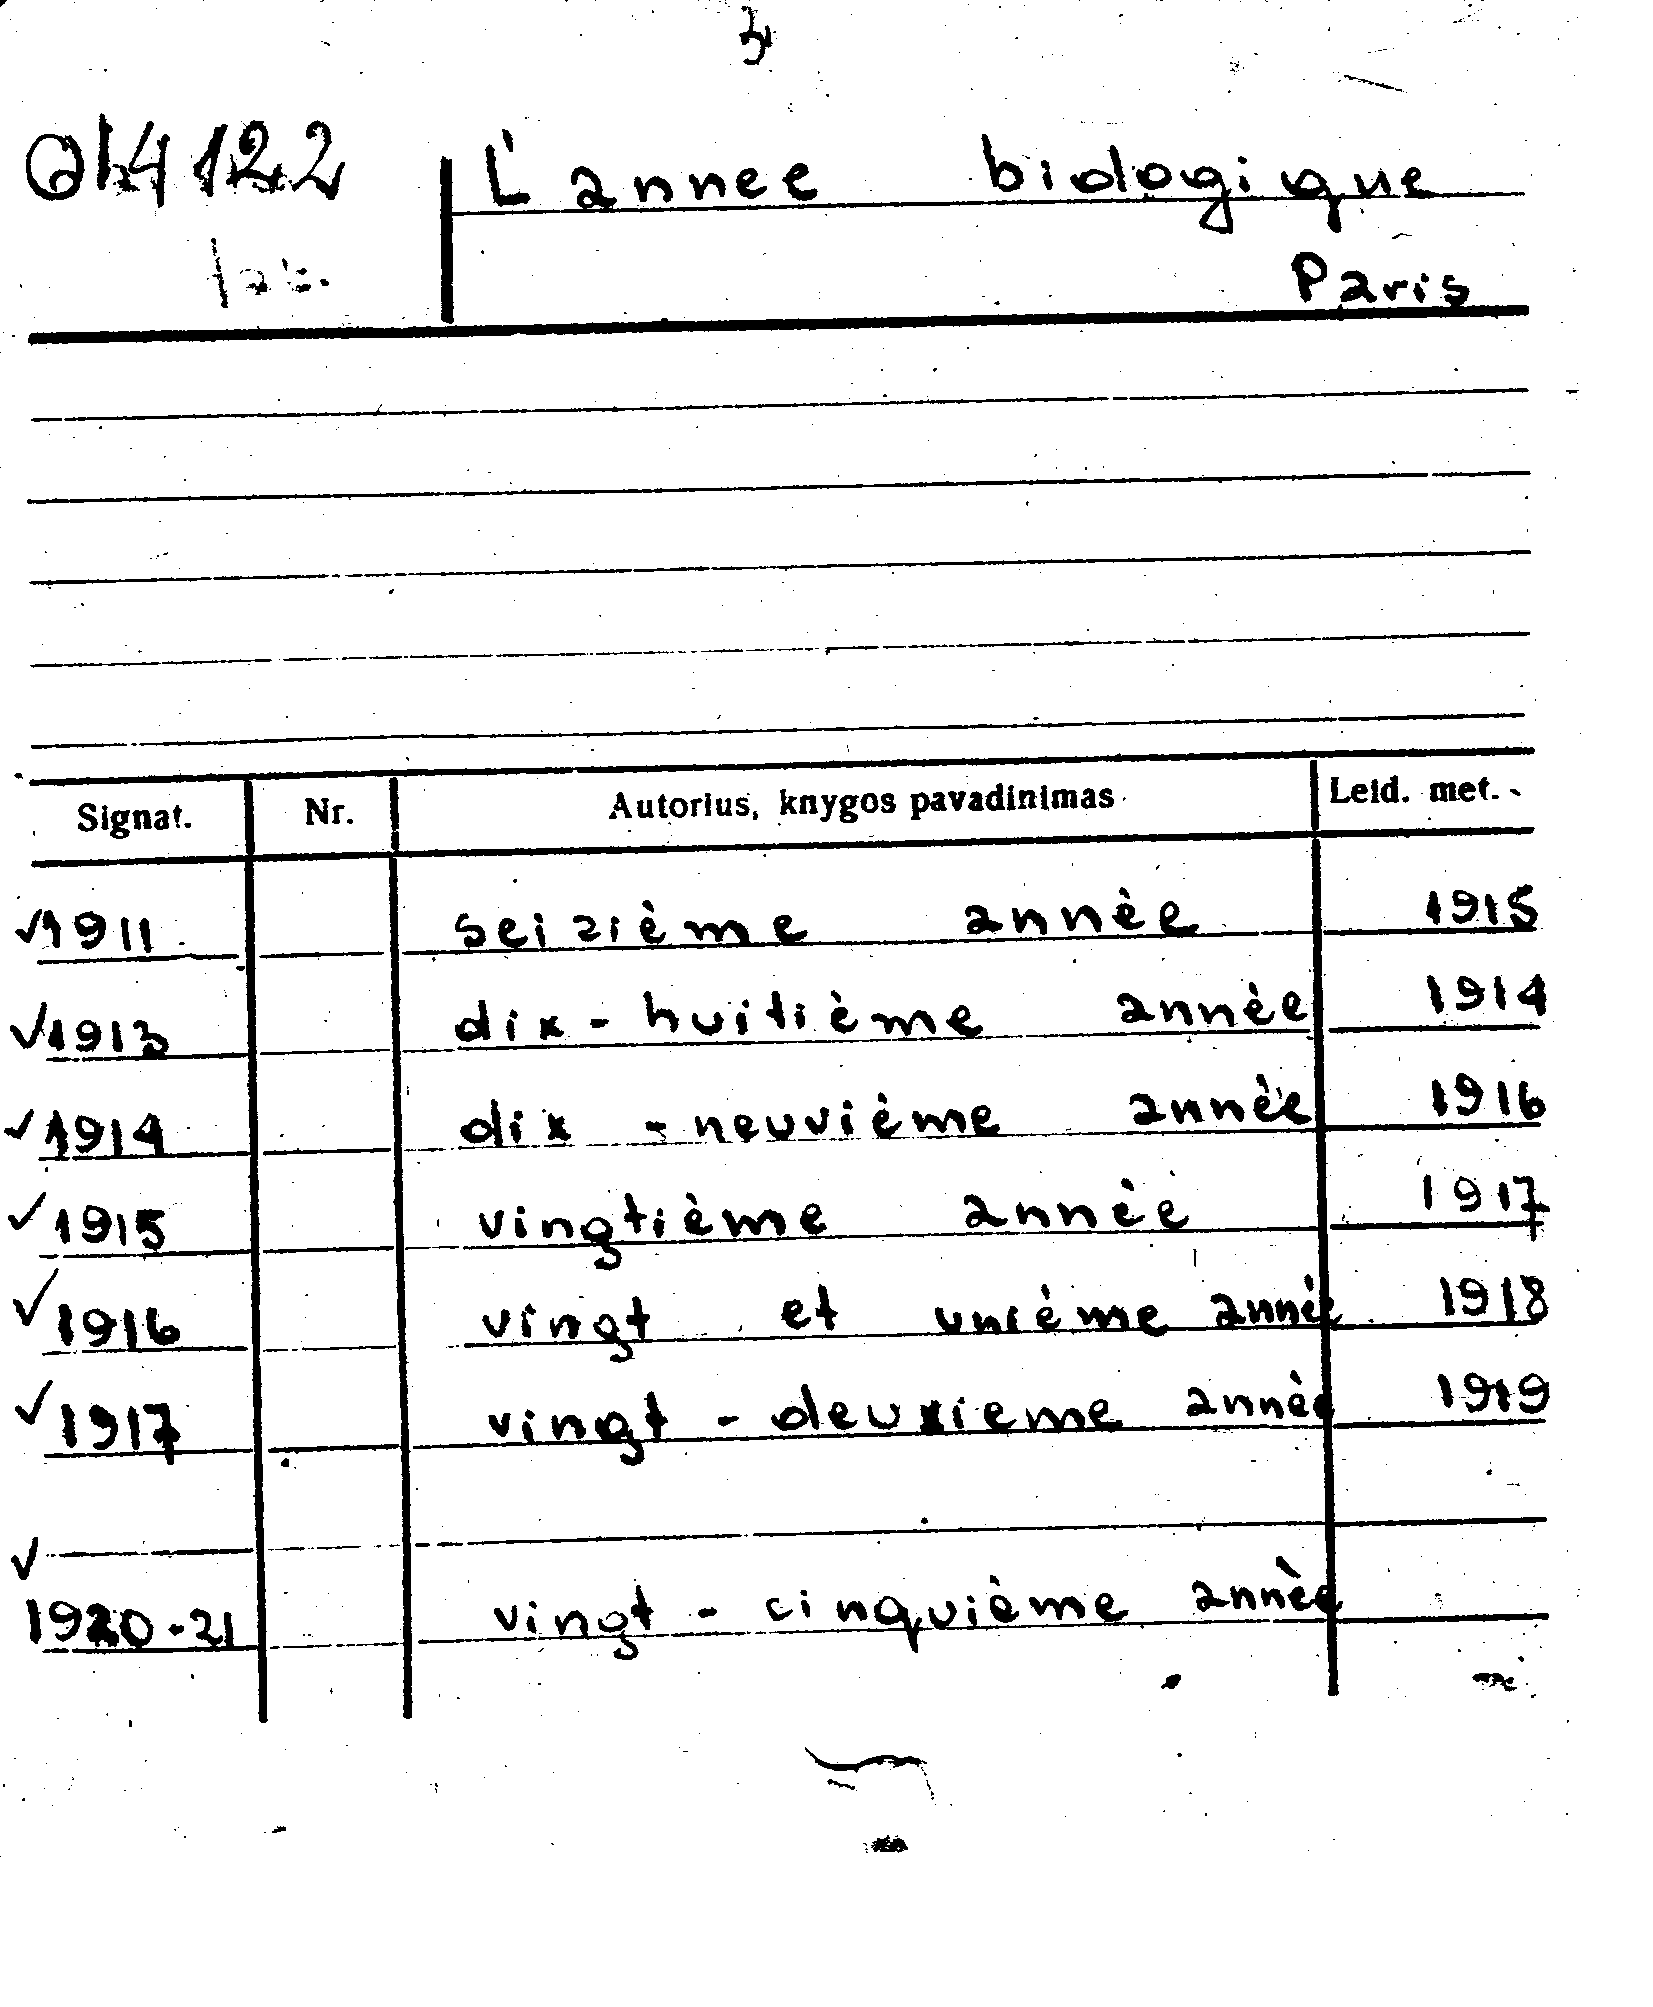 3
L'annee biologique
Paris
Signat. Nr. Autorius, knygos pavadinimas Leid. met.
✓1911 seizième annèe 1915
✓1913 dix - huitième annèe 1914
✓1914 dix - neuvième annèe 1916
✓1915 vingtième annèe 1917
✓1916 vingt et unième annèe 1918
✓1917 vingt - deuxieme annèe 1919
✓
1920-21 vingt - cinquième annèe